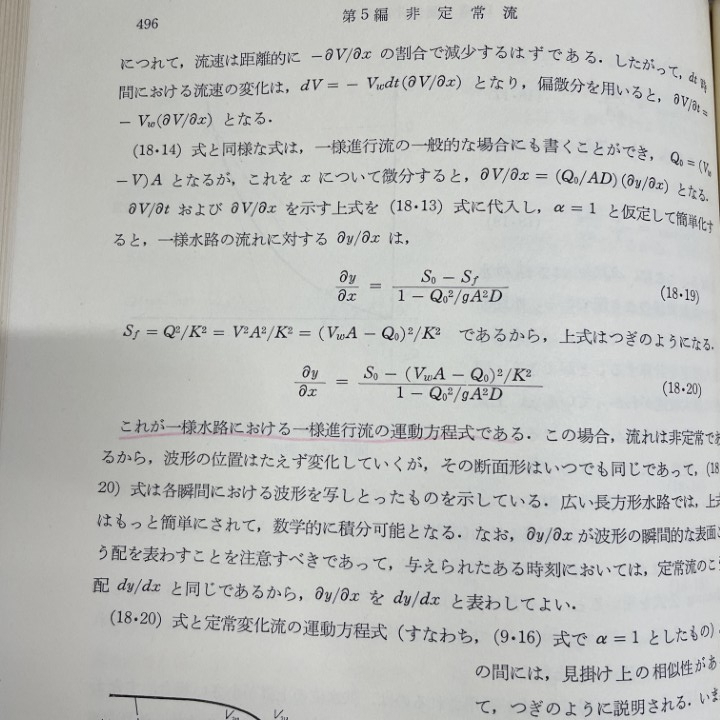 496
第5編 非定常流
につれて，流速は距離的に −∂V/∂x の割合で減少するはずである．したがって，dt 時
間における流速の変化は，dV＝− Vwdt(∂V/∂x) となり，偏微分を用いると，∂V/∂t＝
− Vw(∂V/∂x) となる．
(18・14) 式と同様な式は，一様進行流の一般的な場合にも書くことができ，Q0＝(Vw
−V)A となるが，これを x について微分すると，∂V/∂x＝(Q0/AD)(∂y/∂x) となる．
∂V/∂t および ∂V/∂x を示す上式を (18・13) 式に代入し，α＝1 と仮定して簡単化す
ると，一様水路の流れに対する ∂y/∂x は，
∂y/∂x ＝ (S0 − Sf)/(1 − Q0²/gA²D) (18・19)
Sf＝Q²/K²＝V²A²/K²＝(VwA−Q0)²/K² であるから，上式はつぎのようになる．
∂y/∂x ＝ (S0 − (VwA − Q0)²/K²)/(1 − Q0²/gA²D) (18・20)
これが一様水路における一様進行流の運動方程式である．この場合，流れは非定常であ
るから，波形の位置はたえず変化していくが，その断面形はいつでも同じであって，(18
20) 式は各瞬間における波形を写しとったものを示している．広い長方形水路では，上式
はもっと簡単にされて，数学的に積分可能となる．なお，∂y/∂x が波形の瞬間的な表面こ
う配を表わすことを注意すべきであって，与えられたある時刻においては，定常流のこう
配 dy/dx と同じであるから，∂y/∂x を dy/dx と表わしてよい．
(18・20) 式と定常変化流の運動方程式 (すなわち，(9・16) 式で α＝1 としたもの)
の間には，見掛け上の相似性があ
て，つぎのように説明される．いま
Vw Vw